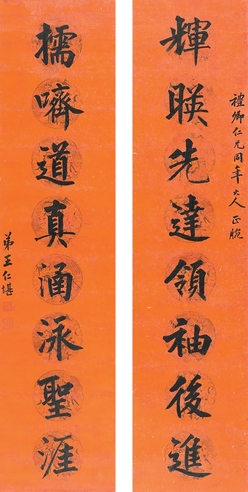 禮卿仁兄同年大人正腕
輝暎先達領袖後進
擩嚌道真涵泳聖涯
弟王仁堪